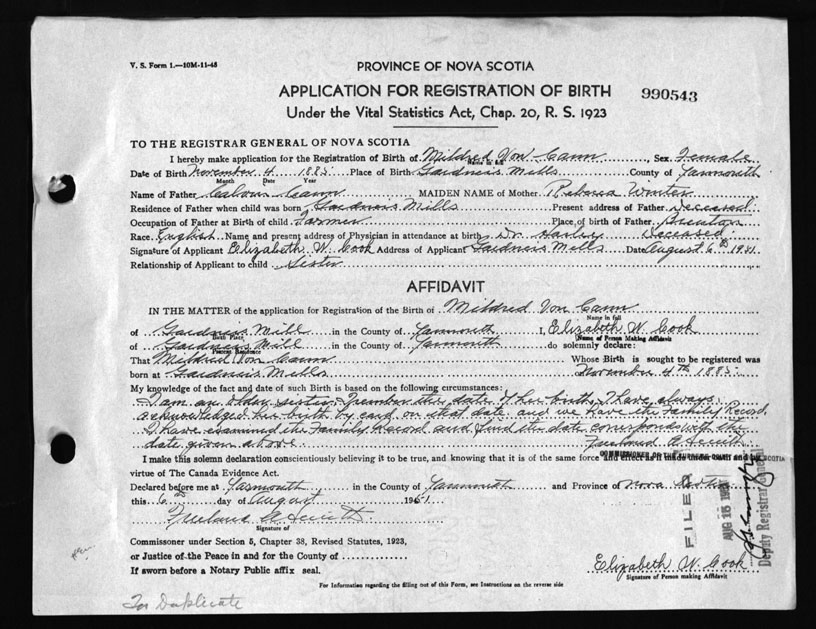 V. S. Form 1.—10M-11-48
PROVINCE OF NOVA SCOTIA
APPLICATION FOR REGISTRATION OF BIRTH
990543
Under the Vital Statistics Act, Chap. 20, R. S. 1923
TO THE REGISTRAR GENERAL OF NOVA SCOTIA
I hereby make application for the Registration of Birth of Mildred Von Cann, Sex Female
Name in full
Date of Birth November 4 1885 Place of Birth Gardner's Mills County of Yarmouth
Month Date Year
Name of Father Calvin Cann MAIDEN NAME of Mother Rebecca
Residence of Father when child was born Gardner's Mills Present address of Father Deceased
Occupation of Father at Birth of child Farmer Place of birth of Father Brenton
Race English Name and present address of Physician in attendance at birth Dr. Harley Deceased
Signature of Applicant Elizabeth W. Cook Address of Applicant Gardner's Mills Date August 6th 1951
Relationship of Applicant to child Sister
AFFIDAVIT
IN THE MATTER of the application for Registration of the Birth of Mildred Von Cann
Name in full
of Gardner's Mill in the County of Yarmouth I, Elizabeth W. Cook
Birth Place Name of Person Making Affidavit
of Gardner's Mill in the County of Yarmouth do solemnly declare:
Present Residence
That Mildred Von Cann Whose Birth is sought to be registered was
born at Gardner's Mills November 4th 1885
My knowledge of the fact and date of such Birth is based on the following circumstances:
I am an older sister, I remember the date of her birth, I have always
acknowledged her birth by card on that date and we have the Family Record.
I have examined the Family Record and find the date corresponds with the
date given above Freeland A. Hewitt
COMMISSIONER OF THE SUPREME COURT NOVA SCOTIA
I make this solemn declaration conscientiously believing it to be true, and knowing that it is of the same force and effect as if made under oath and by
virtue of The Canada Evidence Act.
Declared before me at Yarmouth in the County of Yarmouth and Province of Nova Scotia
this 6th day of August 1951
Freeland A. Hewitt
Signature of
Commissioner under Section 5, Chapter 38, Revised Statutes, 1923,
or Justice of the Peace in and for the County of
If sworn before a Notary Public affix seal.
FILED
AUG 15 1951
Deputy Registrar General
Elizabeth W. Cook
Signature of Person making Affidavit
For Information regarding the filling out of this Form, see Instructions on the reverse side
For Duplicate